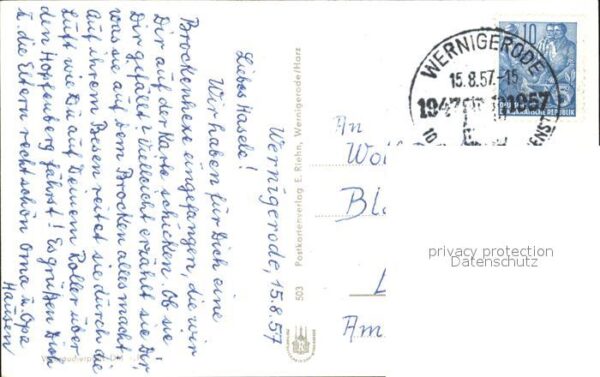 Wernigerode, 15.8.57
Liebes Hasele!
Wir haben für Dich eine
Brockenhexe eingefangen, die wir
Dir auf der Karte schicken. Ob sie
Dir gefällt? Vielleicht erzählt sie Dir,
was sie auf dem Brocken alles macht.
Auf ihrem Besen reitet sie durch die
Luft wie Du auf Deinem Roller über
den Hopfenberg fährst! Es grüßen Dich
u. die Eltern recht schön Oma u. Opa
Hausen
503 Postkartenverlag E. Riehn, Wernigerode/Harz
WERNIGERODE
15.8.57.-15
1947
1957
10
An
Am
privacy protection
Datenschutz